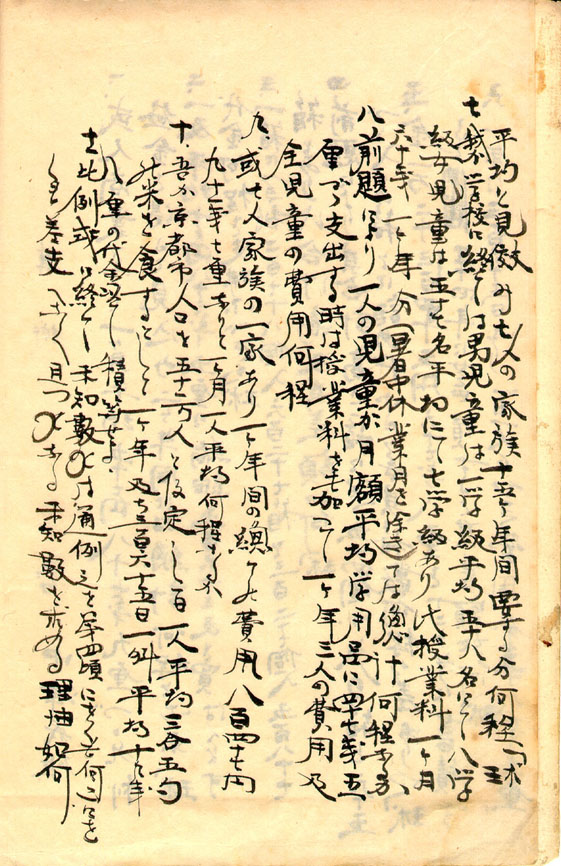 平均と見做し七人の家族十五ヶ年間要する分何程
七、我が学校に終ては男児童は一学級平均五十八名にて八学
級女児童は五十七名平均にて七学級あり此授業料一ヶ月
六十銭一ヶ年分（暑中休業月を除き）ては総計何程なるか
八、前題により一人の児童が月額平均学用品に四十七銭五
厘づゝ支出する時は授業料をも加へて一ヶ年三人の費用及
全児童の費用何程
九、或七人家族の一家あり一ヶ年間の総ての費用八百四十七円
九十一銭七厘なりと一ヶ月一人平均何程なるか
十、吾が京都市人口を五十二万人と仮定し一日一人平均三合五勺
の米を食するとして一ヶ年及ち三百六十五日一升平均十九銭
八厘の代金として積算せよ
十一、比例式に終て未知数xは通例之を第四項におく若何こにを
くも差支へなく且つxなる未知数を求める理由如何